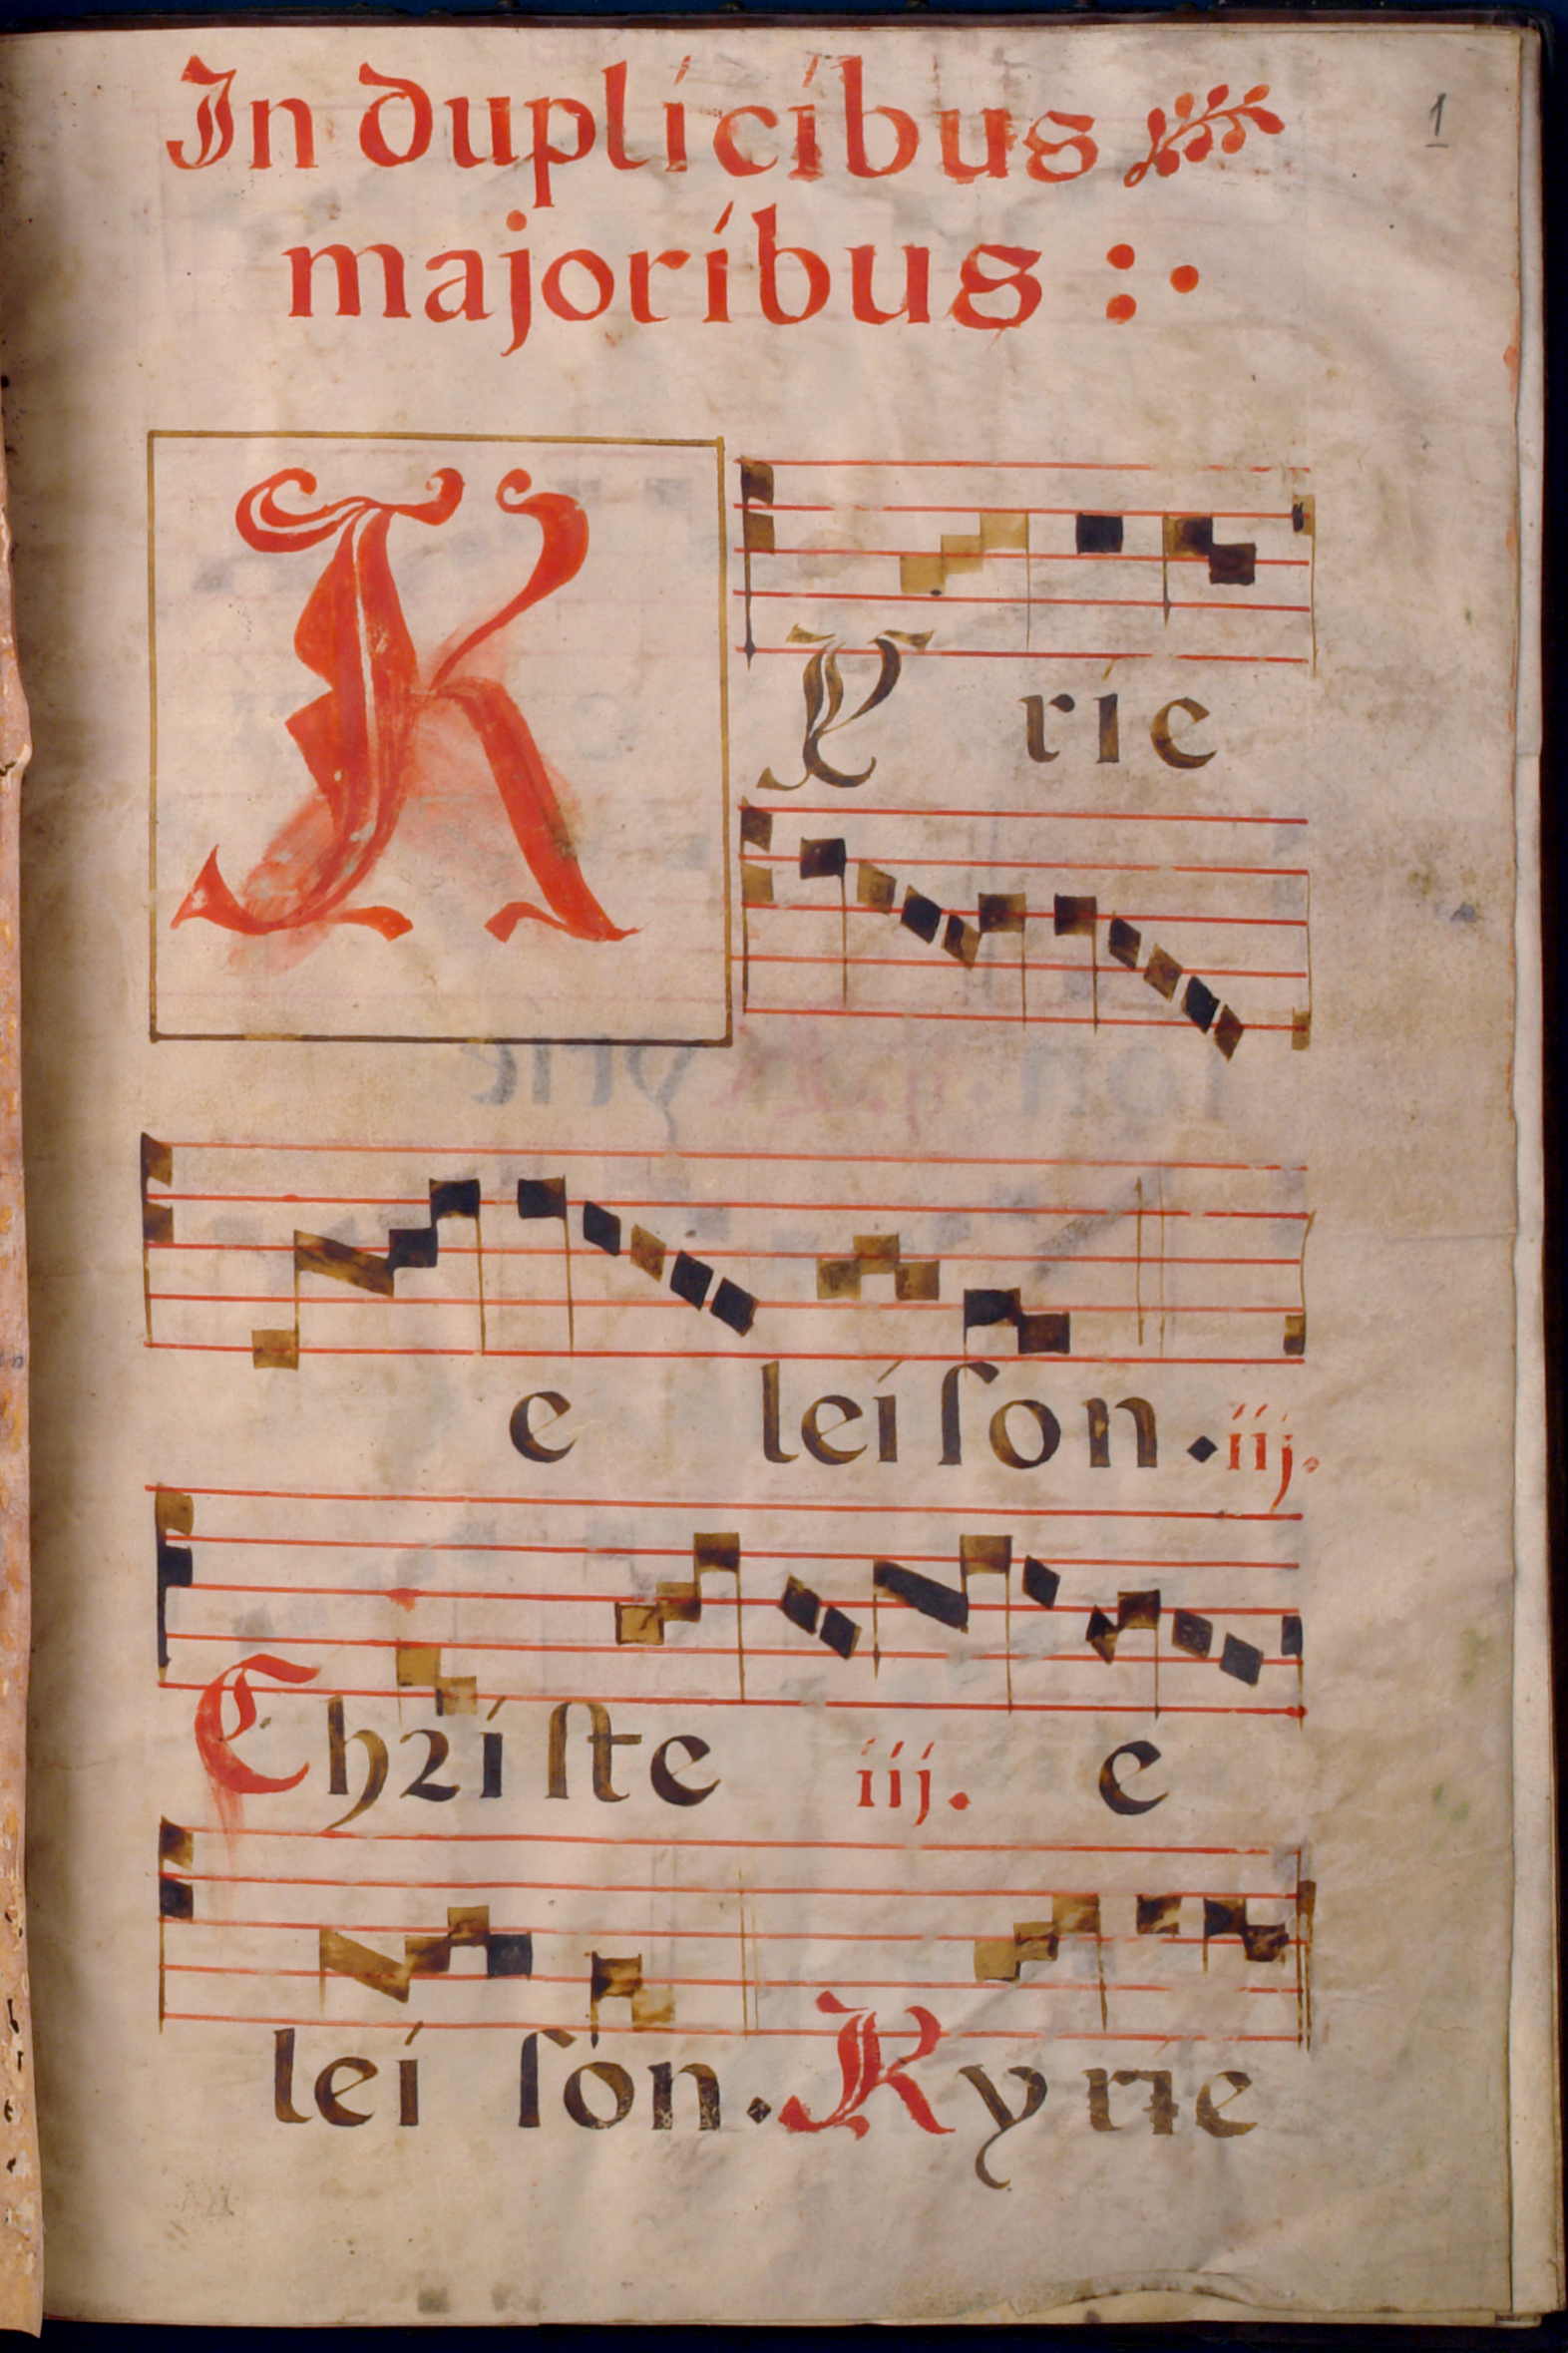 In duplicibus
1
majoribus :·
KYrie
eleiſon. iij.
Chriſte iij. e
leiſon. Kyrie